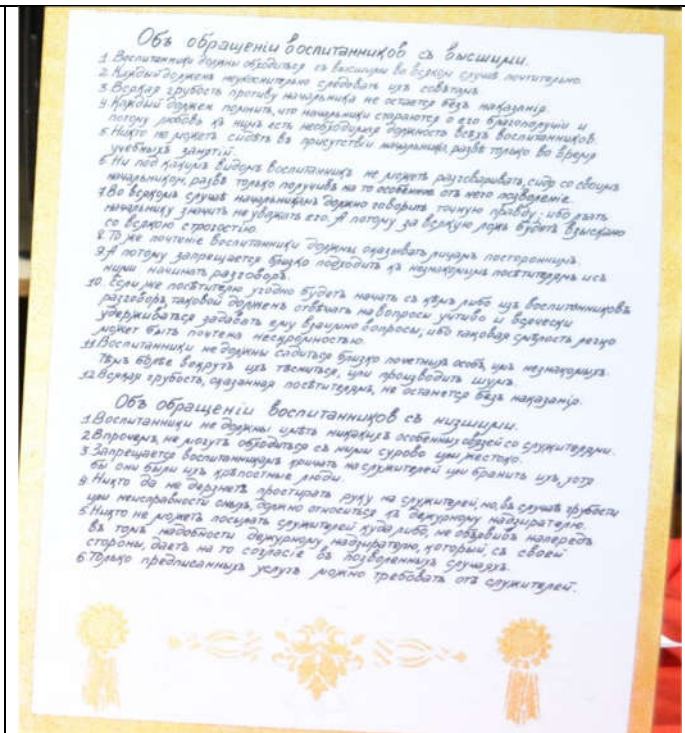 Объ обращеніи воспитанниковъ съ высшими.
1. Воспитанники должны обходиться съ высшими во всякомъ случаѣ почтительно.
2. Каждый долженъ неукоснительно слѣдовать ихъ совѣтамъ.
3. Всякая грубость противу начальника не остается безъ наказанія.
4. Каждый долженъ помнить, что начальники стараются о его благополучіи и
потому любовь къ нимъ есть необходимая должность всѣхъ воспитанниковъ.
5. Никто не можетъ сидѣть въ присутствіи начальника, развѣ только во время
учебныхъ занятій.
6. Ни под какимъ видомъ воспитанникъ не можетъ разговаривать, сидя со своимъ
начальникомъ, развѣ только получивъ на то особенное отъ него позволеніе.
7. Во всякомъ случаѣ начальникамъ должно говорить точную правду; ибо лгать
начальнику значитъ не уважать его. А потому за всякую ложь будетъ взыскано
со всякою строгостію.
8. То же почтеніе воспитанники должны оказывать лицамъ постороннимъ.
9. А потому запрещается близко подходить къ незнакомымъ посѣтителямъ и съ
ними начинать разговоръ.
10. Если же посѣтителю угодно будетъ начать съ кѣмъ либо изъ воспитанниковъ
разговоръ, таковой долженъ отвѣчать на вопросы учтиво и всячески
удерживаться задавать ему взаимно вопросы; ибо таковая смѣлость легко
может быть почтена нескромностью.
11. Воспитанники не должны садиться близко почетныхъ особъ, имъ незнакомыхъ.
Тѣмъ болѣе вокругъ ихъ тѣсниться, или производить шумъ.
12. Всякая грубость, оказанная посѣтителямъ, не останется безъ наказанія.
Объ обращеніи воспитанниковъ съ низшими.
1. Воспитанники не должны имѣть никакихъ особенныхъ связей со служителями.
2. Впрочемъ, не могутъ обходиться съ ними сурово или жестоко.
3. Запрещается воспитанникамъ кричать на служителей или бранить ихъ, хотя
бы они были ихъ крѣпостные люди.
4. Никто да не дерзнетъ простирать руку на служителей, но, въ случаѣ грубости
или неисправности оныхъ, должно относиться къ дежурному надзирателю.
5. Никто не можетъ посылать служителей куда либо, не объявивъ напередъ
въ томъ надобности дежурному надзирателю, который, съ своей
стороны, даетъ на то согласіе въ позволенныхъ случаяхъ.
6. Только предписанныхъ услугъ можно требовать отъ служителей.